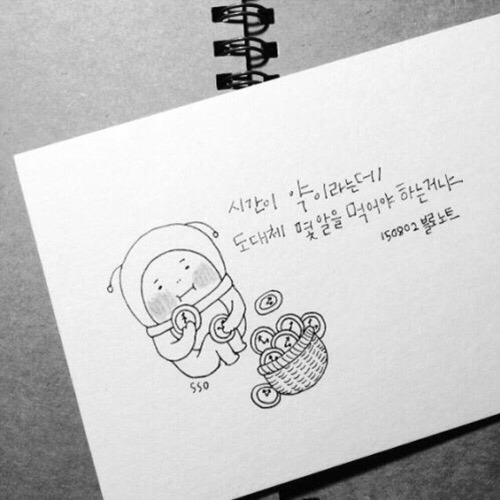 시간이 약이라는데
도대체 몇알을 먹어야 하는거냐
150802 블로노트
SSO